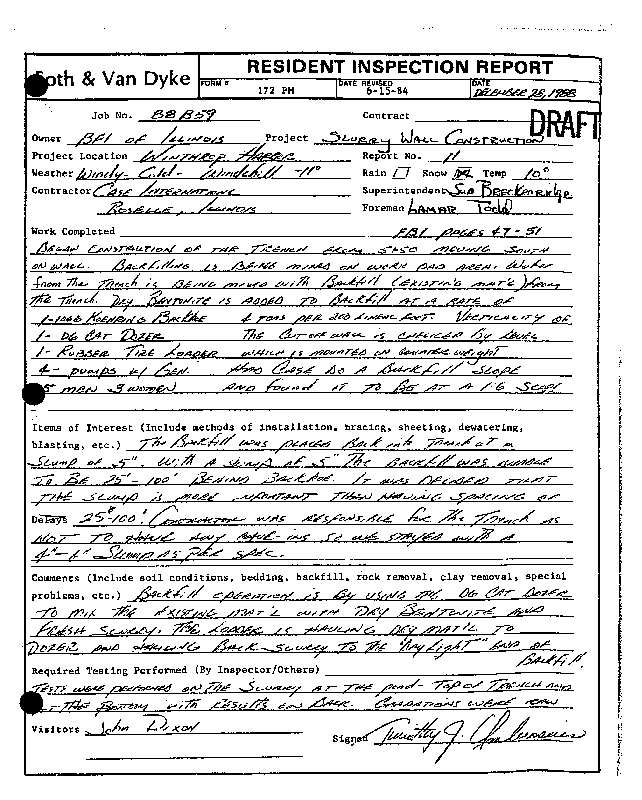 Foth & Van Dyke
RESIDENT INSPECTION REPORT
FORM # 172 PM DATE REVISED 6-15-84 DATE DECEMBER 28, 1988
Job No. 88B59 Contract
DRAFT
Owner BFI OF ILLINOIS Project SLURRY WALL CONSTRUCTION
Project Location WINTHROP HARBOR Report No. 11
Weather Windy - Cold - Windchill -11° Rain Snow Temp 10°
Contractor CASE INTERNATIONAL Superintendent BRECKENRIDGE
ROSELLE, ILLINOIS Foreman LAMAR TODD
Work Completed FBI PAGES 47-51
BEGAN CONSTRUCTION OF THE TRENCH FROM 5+50 MOVING SOUTH
ON WALL. BACKFILLING IS BEING MIXED ON WORK PAD AREA. Water
from The Trench is BEING mixed with BACKfill (EXISTING MAT'L) from
the Trench. DRY BENTONITE IS ADDED TO BACKFILL AT A RATE OF
KOEHRING BACKHOE 4 TONS PER LINEAL FOOT. VERTICALITY OF
1- D6 CAT DOZER THE CUT OFF WALL IS CHECKED By LEVEL
1- RUBBER TIRE LOADER WHICH IS MOUNTED ON
4- PUMPS w/ GEN. HAD CASE DO A BACKFILL SLOPE
5 MEN 3 WOMEN AND FOUND IT TO BE AT A 1:6 SLOPE
Items of Interest (Include methods of installation, bracing, sheeting, dewatering,
blasting, etc.) The BACKfill WAS PLACED BACK into Trench AT A
SLUMP OF 5". WITH A SLUMP OF 5" THE BACKFILL WAS
TO BE 25' - 100' BEHIND BACKHOE. IT WAS DECIDED THAT
THE SLUMP IS MORE IMPORTANT THEN HAVING SPACING OF
Delays 25'-100'. CONTRACTOR WAS RESPONSIBLE FOR THE TRENCH AS
NOT TO HAVE ANY CAVE-INS SO WE STAYED WITH A
SLUMP AS PER SPEC.
Comments (Include soil conditions, bedding, backfill, rock removal, clay removal, special
problems, etc.) BACKfill OPERATION IS By USING THE D6 CAT DOZER
TO MIX THE EXISTING MAT'L WITH DRY BENTONITE AND
FRESH SLURRY. THE LOADER IS HAULING DRY MAT'L TO
DOZER AND HAULING BACK-SLURRY TO THE "DAYLIGHT" END OF
BACKFILL.
Required Testing Performed (By Inspector/Others)
TESTS WERE PERFORMED ON THE SLURRY AT THE POND - TOP OF TRENCH AND
AT THE BOTTOM WITH RESULTS ON BACK. WERE
Visitors John Dixon
Signed Timothy J.